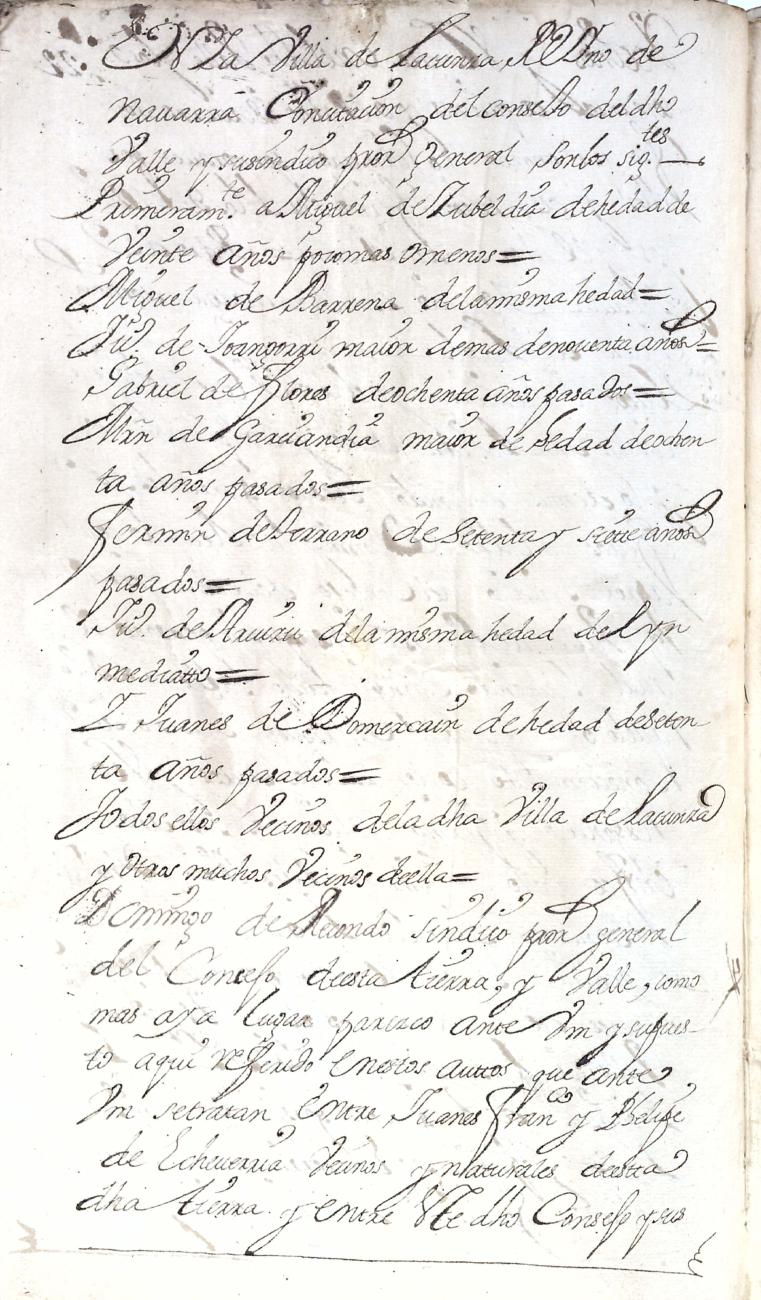 En la Villa de Lacunza, Rno de
Nauarra Concitacion del consejo del dho
Valle y su sindico pror general son los sigtes
Primeramte a Miguel de Zubeldia de hedad de
veinte años poco mas o menos =
Miguel de Barrena de la misma hedad =
Juo. de Ioangorri maior de mas de nouenta años =
Gabriel de Flores de ochenta años pasados =
Mrn de Garciandia maior de hedad de ochen
ta años pasados =
Fermin de Serrano de setenta y siette años
pasados =
Juo. de de la misma hedad del yn
mediatto =
Y Juanes de Domercain de hedad de seten
ta años pasados =
Todos ellos Vecinos de la dha Villa de Lacunza
y otros muchos Vecinos de ella =
Domingo de Recondo sindico pror general
del Consejo de esta tierra, y Valle, como
mas aya lugar parezco ante Vm y supues
to aqui referido en estos auttos que ante
Vm se tratan entre Juanes Franco y Phelipe
de Echeuerria vecinos y naturales de esta
dha tierra y entre el dho Consejo y sus